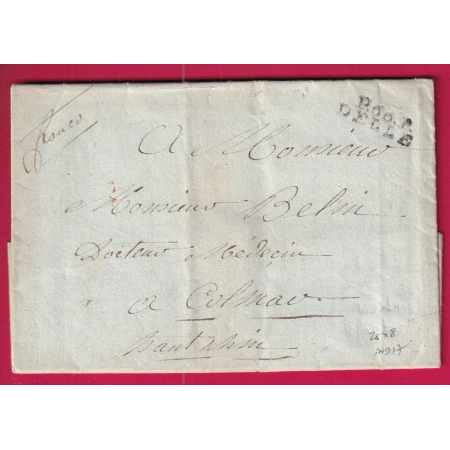 franco
P.66.P.
DELLE
A Monsieur
Monsieur Belin
Docteur Médecin
a Colmar
haut Rhin